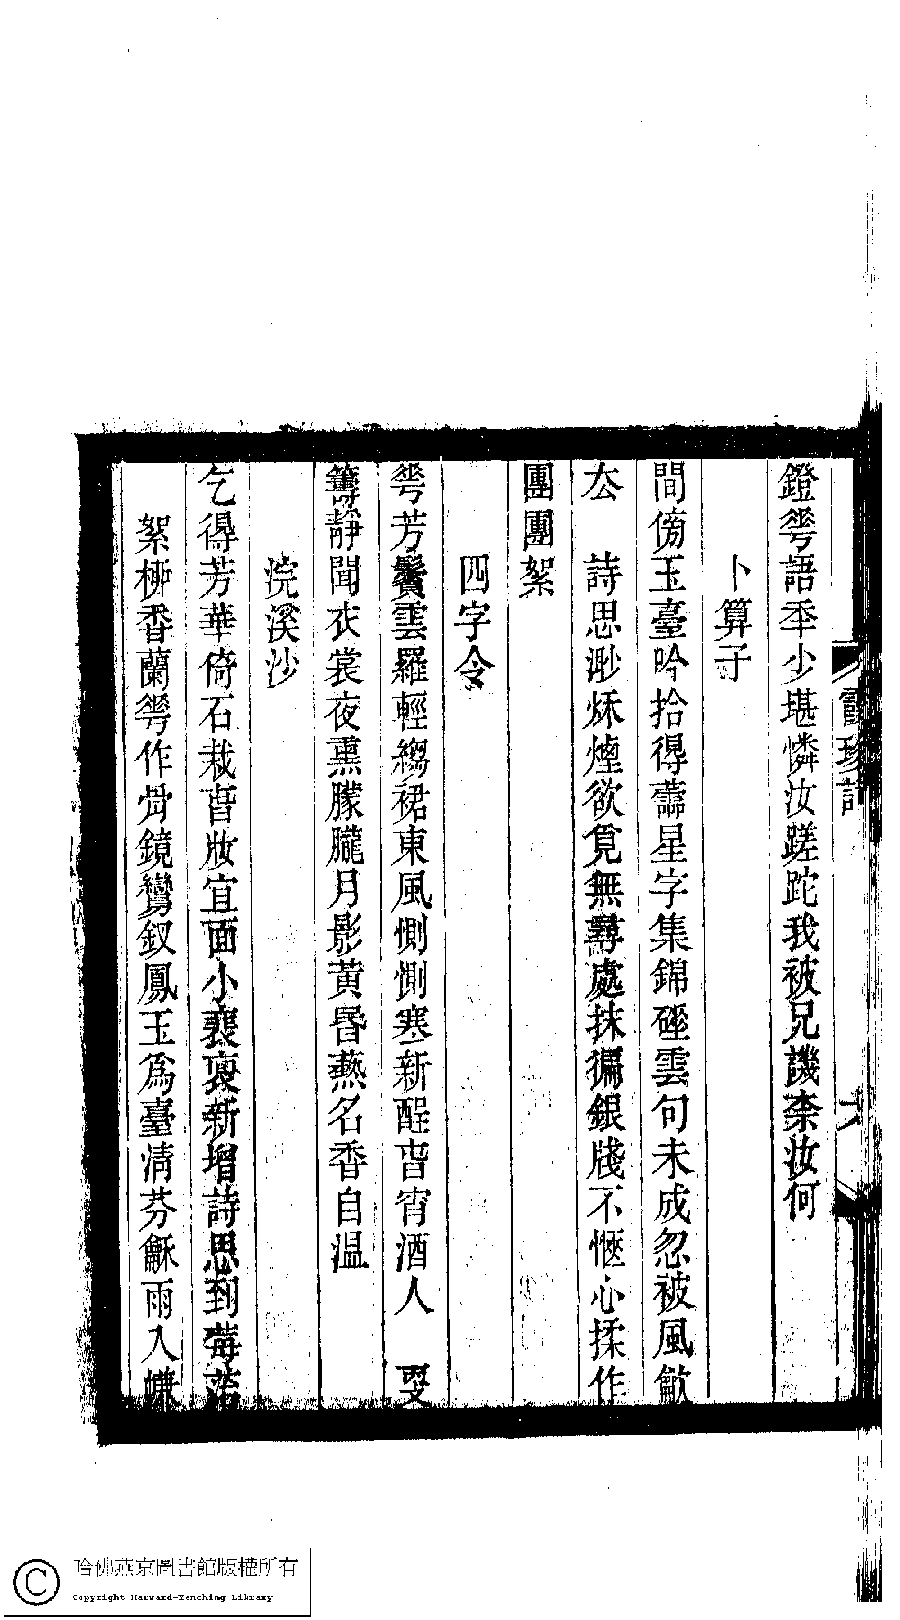 鐙雩語秊少堪憐汝蹉跎我被兄譏柰汝何
卜算子
間傍玉臺吟拾得蕭星字集錦硾雲句未成忽被風歛
厺 詩思渺烁煙欲覓無尋處抹徧銀牋不愜心揉作
團團絮
四字令
雩芳鬢雲羅輕縐裙東風惻惻寒新醒旾宵酒人
靜聞衣裳夜熏朦朧月影黄昬爇名香自温
浣溪沙
乞得芳華倚石栽旾妝宜面小裵褱新增詩思到莓
絮柳香蘭雩作骨鏡鸞釵鳳玉爲臺清芬龢雨入
霞珍詞
哈佛燕京圖書館版權所有
Copyright Harvard-Yenching Library